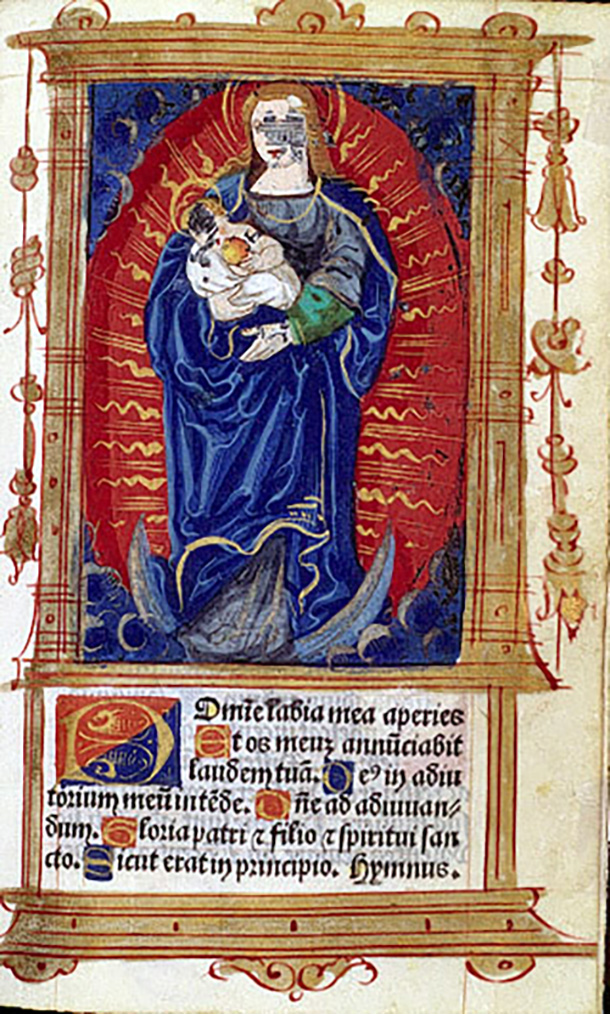 Dm̄e labia mea aperies
Et os meuʒ annūciabit
laudem tuā. De⁹ in adiu
torium meū intēde. Dn̄e ad adiuuan⸗
dum. Gloria patri ⁊ filio ⁊ spiritui san
cto. Sicut erat in principio. Hymnus.